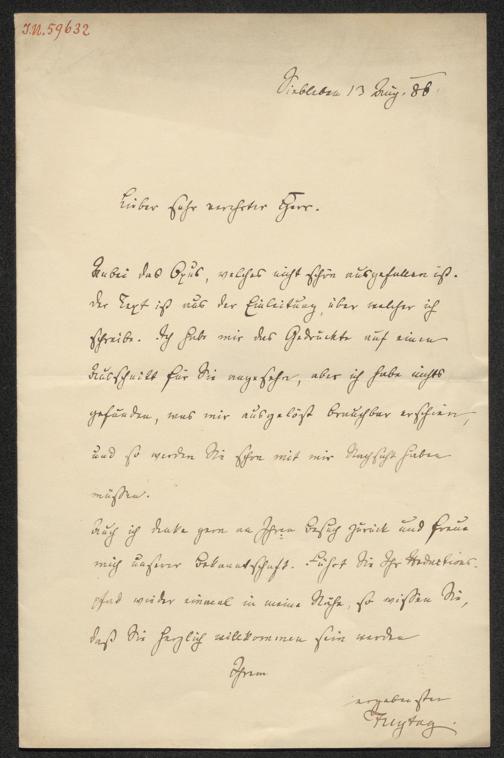 J.N. 59632
Siebleben 13 Aug. 86.
Lieber sehr verehrter Herr.
Anbei das Opus, welches nicht schön ausgefallen ist.
Der Text ist aus der Einleitung, über welcher ich
schreibe. Ich habe mir das Gedruckte auf einen
Ausschnitt für Sie angesehn, aber ich habe nichts
gefunden, was mir ausgelöst brauchbar erschien,
und so werden Sie schon mit mir Nachsicht haben
müssen.
Auch ich denke gern an Ihren Besuch zurück und freue
mich unserer Bekanntschaft. Führt Sie Ihr Redactions-
pfad wieder einmal in meine Nähe, so wissen Sie,
daß Sie herzlich willkommen sein werden
Ihrem
ergebensten
Freytag.